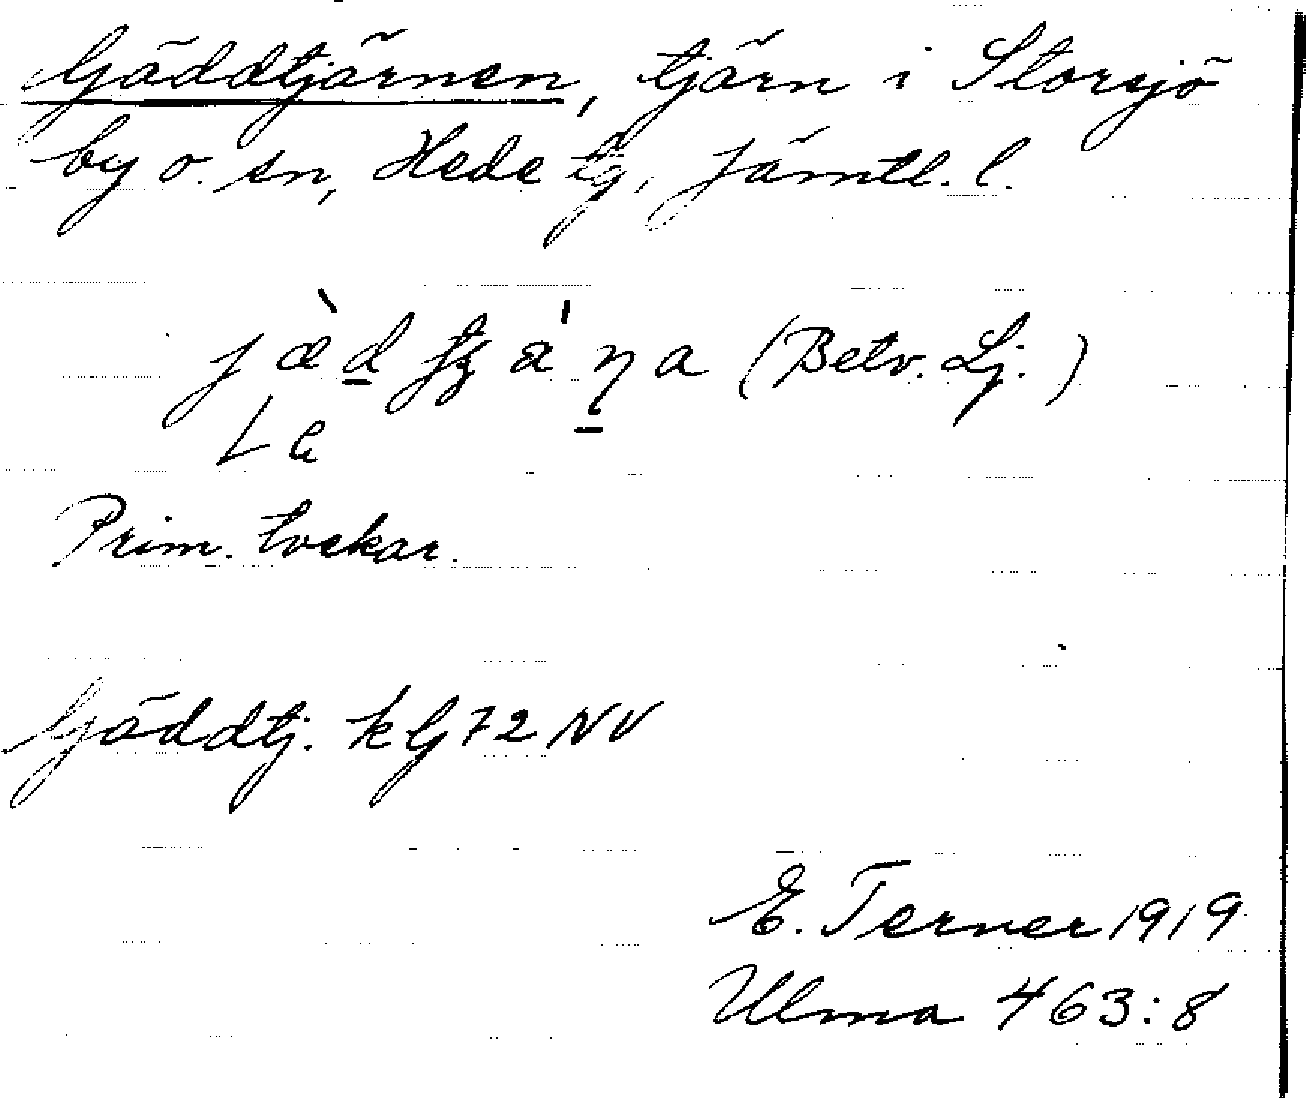 Gäddtjärnen, tjärn i Storsjö
by o. sn, Hede tg, Jämtl. l.
(Betv. Lj.)
Prim. tvekar.
Gäddtj. kG72NV
E. Terner 1919
Ulma 463:8